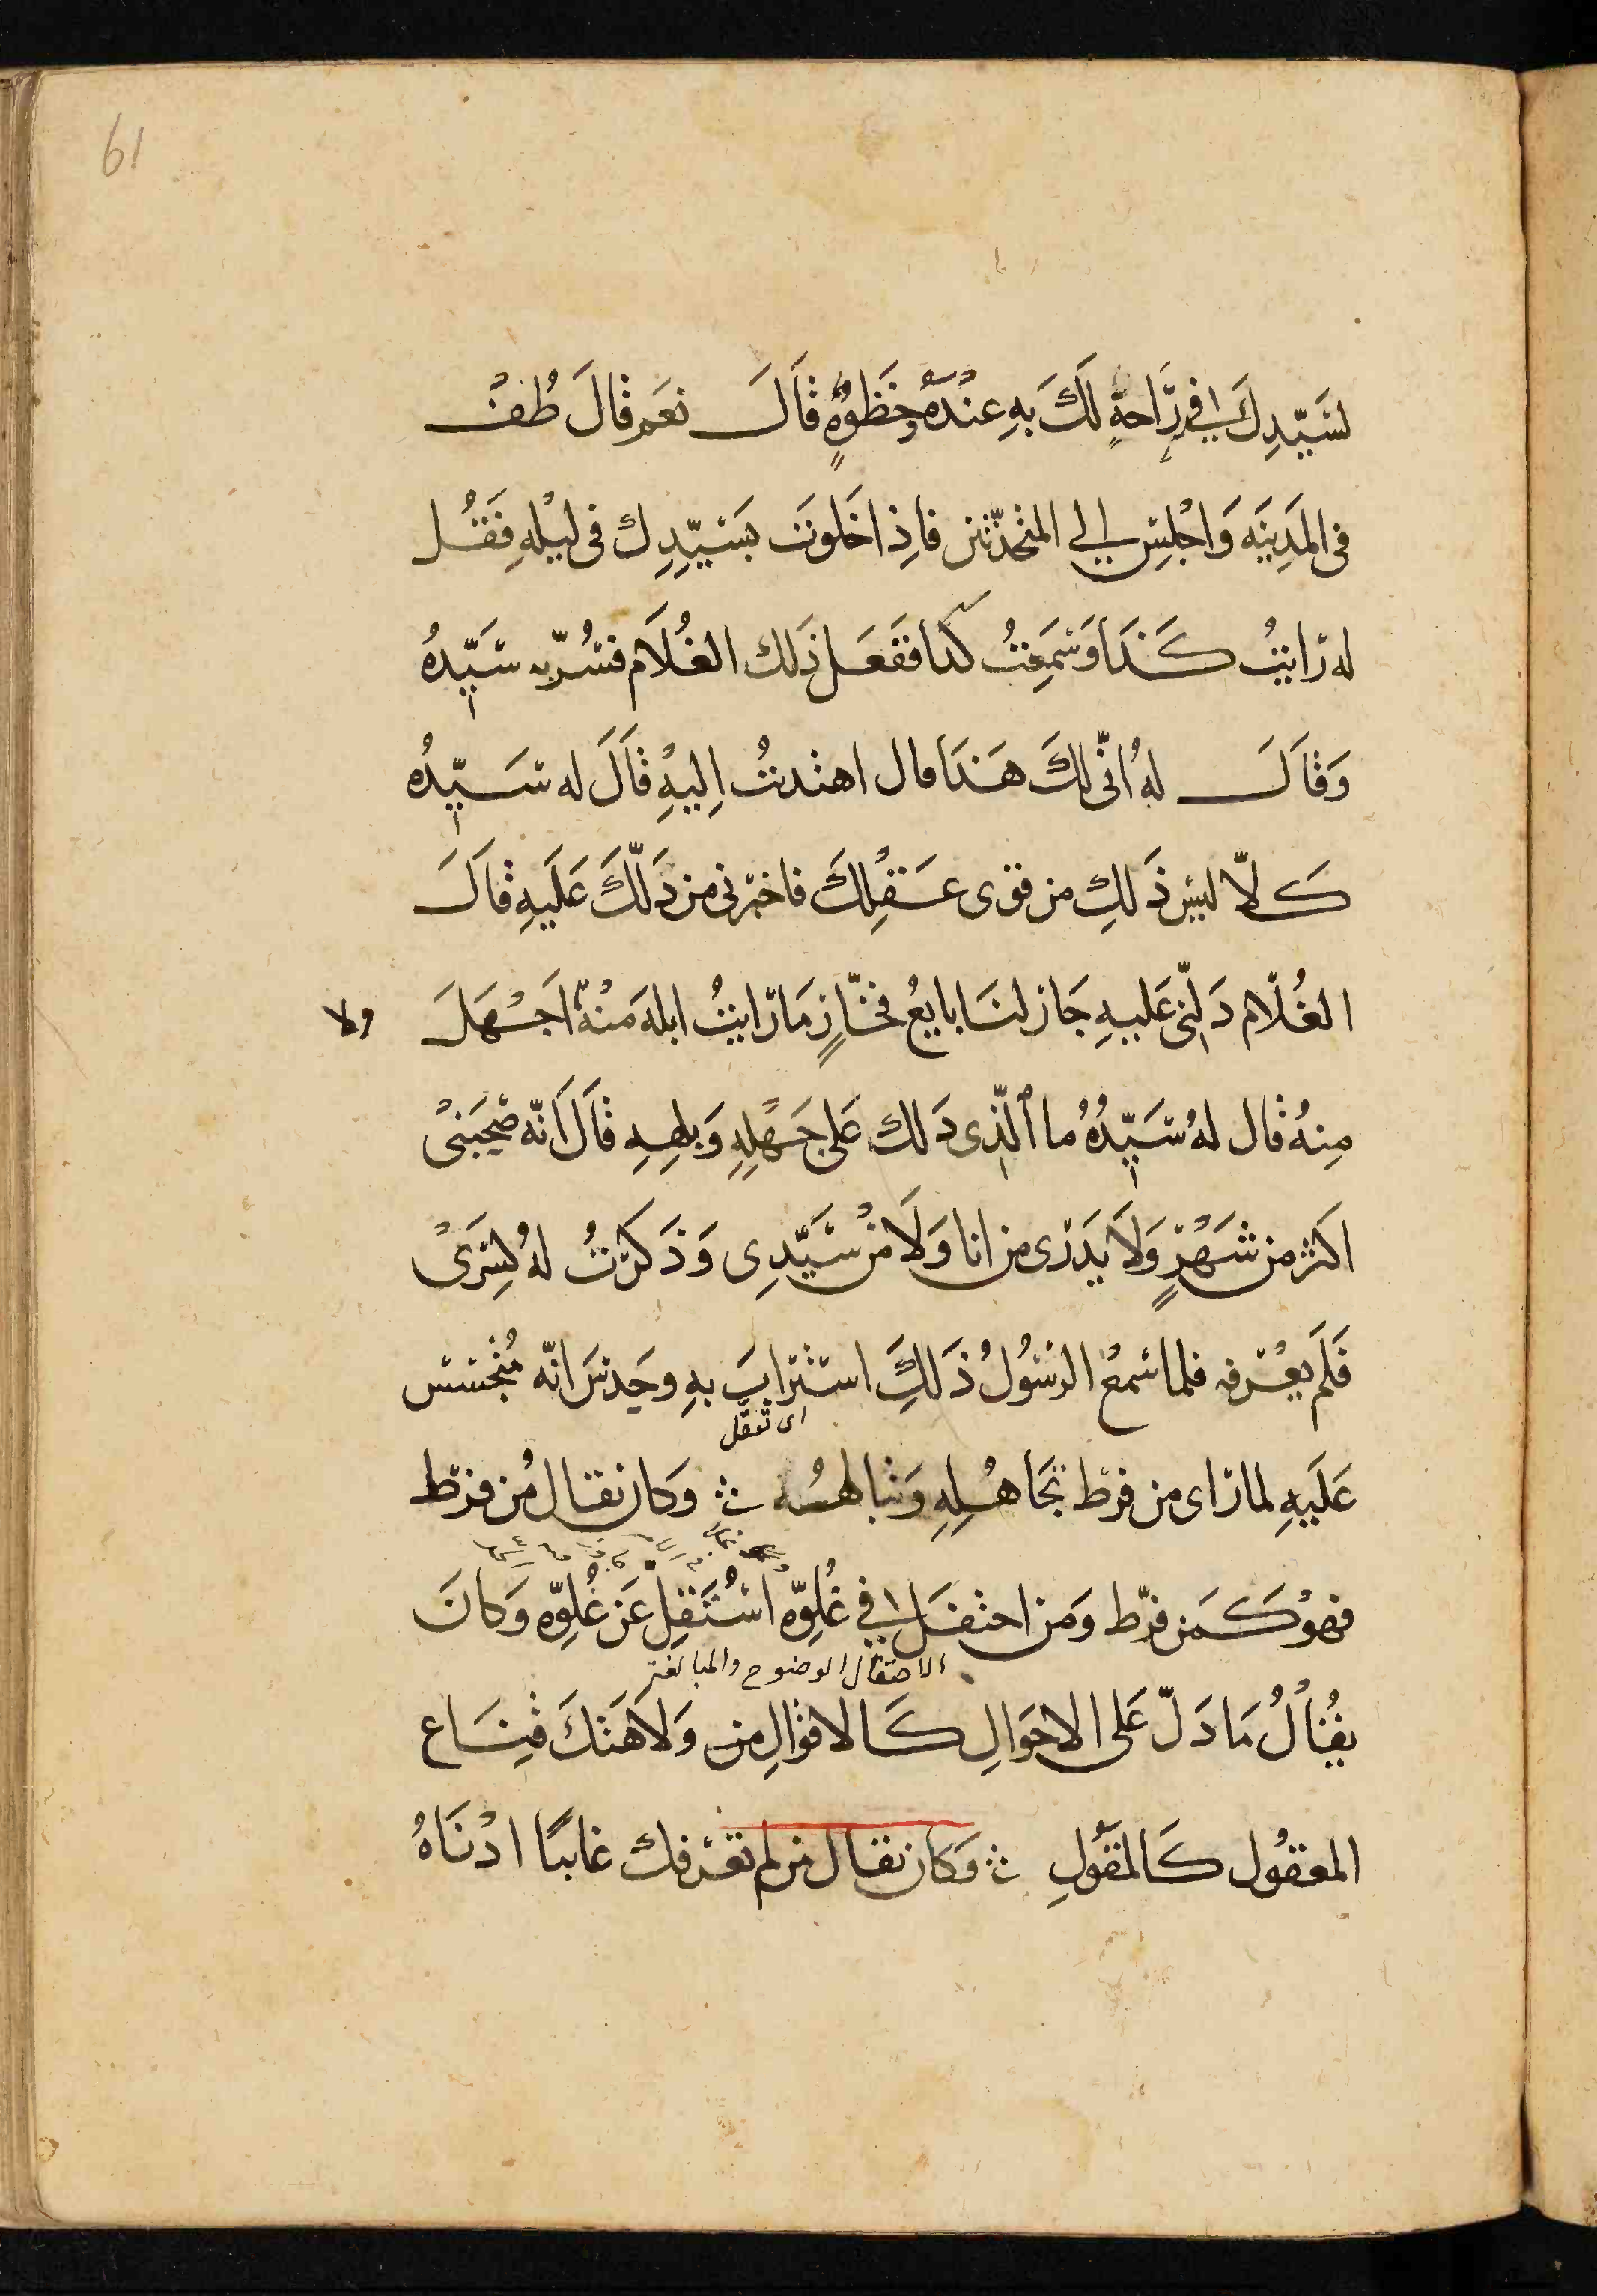 61
لسَيّدِكَ فى رَاحةٍ لَكَ بهِ عندهُ حظوةٍ قَالَ نعَم قالَ طُفْ
فى المَدِينَه وَاجْلِسْ الى المتحدّثين فاذِا خَلوتَ بسَيّدِك فى ليْلهِ فَقُل
له رَايتُ كَذَا وَسَمِعتُ كذا ففَعَل ذَلك الغُلاَم فسُرّ به سَيّدهُ
وَقالَ لهُ انّى لكَ هَذَا مال اهتديتُ اِليْهِ قَالَ له سَيّدُه
كَلاّ ليسَ ذَلكِ من قوى عَقْلِكَ فاخبرنى من دَلّكَ عَلَيهِ قالَ
الغُلاَم دَلّنى عَليهِ جَار لنَا بايعُ فخّارٍ مَا رَايتُ ابلهَ منْهُ اَجْهَلَ ولا
مِنهُ قال لهُ سَيّدُهُ ما الّذى دَلك عَلى جَهْلِهِ وَبلهِهِ قالَ انّه صَحِبَنىْ
اكثر من شَهْرٍ وَلاَ يدَرى من انا وَلاَ منْ سَيّدِى وَذَكرتُ لهُ كِسْرَىْ
فَلَم يعْرفه فلما سَمعَ الرسُولُ ذَلكِ استرابَ بهِ وحَدسَ انّه مُتجسّس
اى تعقل
عَلَيهِ لما رَاى من فرط تجَاهُلِهِ وَتبالهُه وَكان يقال مُن فرّط
فهوُ كَمَن فرّط وَمَن احتفَل فى غُلوّه اسْتُثقِل عَن عُلوّه وَكانَ
الاحتفال الوضوح والمبالغة
يقُالُ مَا دَلّ عَلى الاحوَالِ كَالاقوَالِ من وَلاَ هَتكَ قِنَاع
المعقُول كَالمقَولِ وَكان يقال من لم تعَرفك غايبًا ادْنَاهُ